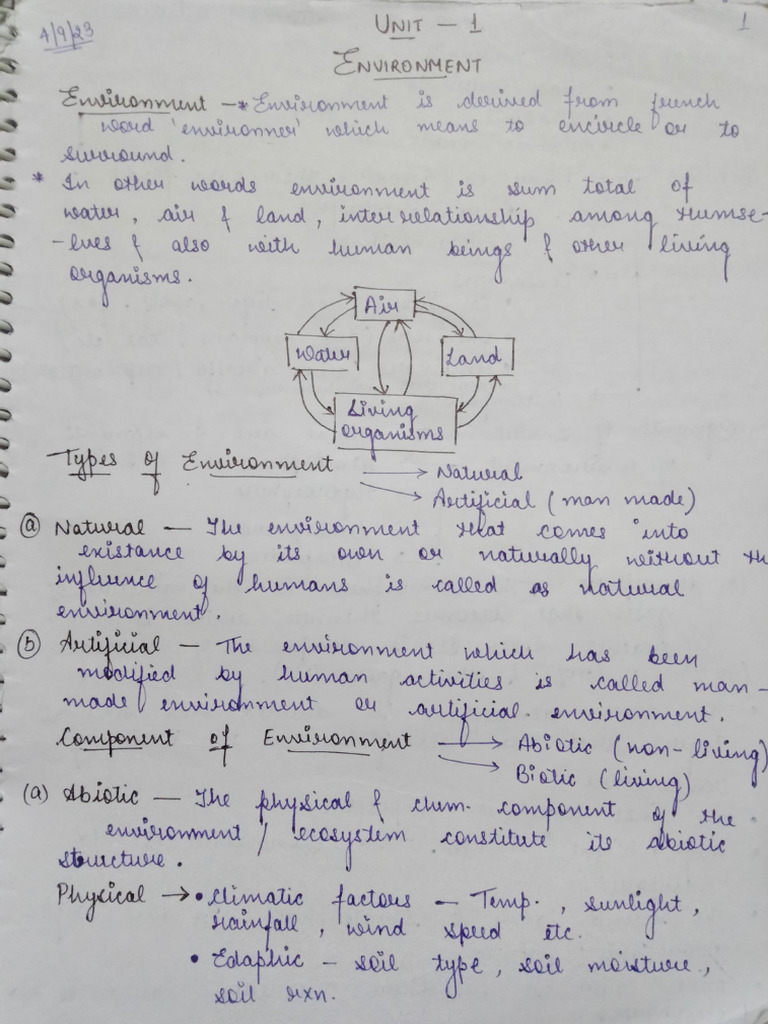 4/9/23
UNIT - 1
1
ENVIRONMENT
Environment - * Environment is derived from french
word 'environner' which means to encircle or to
surround.
* In other words environment is sum total of
water, air & land, inter relationship among themse-
-lves & also with human beings & other living
organisms.
Air
Water
Land
Living
organisms
Types of Environment → Natural
→ Artificial (man made)
(a) Natural - The environment that comes into
existance by its own or naturally without th
influence of humans is called as natural
environment.
(b) Artificial - The environment which has been
modified by human activities is called man-
made environment or artificial environment.
Component of Environment → Abiotic (non-living)
→ Biotic (living)
(a) Abiotic - The physical & chem. component of the
environment / ecosystem constitute its abiotic
structure.
Physical → • Climatic factors - Temp., sunlight,
rainfall, wind speed etc.
• Edaphic - soil type, soil moisture,
soil rxn.